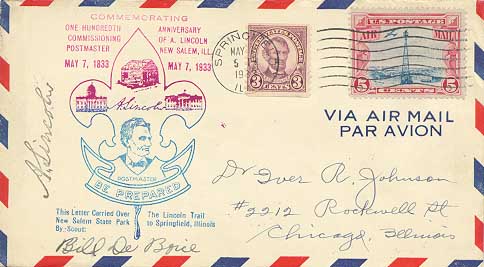 COMMEMORATING
ONE HUNDREDTH ANNIVERSARY
COMMISSIONING OF A. LINCOLN
POSTMASTER NEW SALEM, ILL.
MAY 7, 1833 MAY 7, 1933
A. Lincoln
A. Lincoln
POSTMASTER
BE PREPARED
This Letter Carried Over The Lincoln Trail
New Salem State Park to Springfield, Illinois
By-Scout:
Bill De Boice
SPRINGFIELD
MAY
5
ILL
3 CENTS 3
U.S. POSTAGE
AIR MAIL
5 CENTS 5
VIA AIR MAIL
PAR AVION
Dr Iver R. Johnson
#2212 Rockwell St
Chicago, Illinois